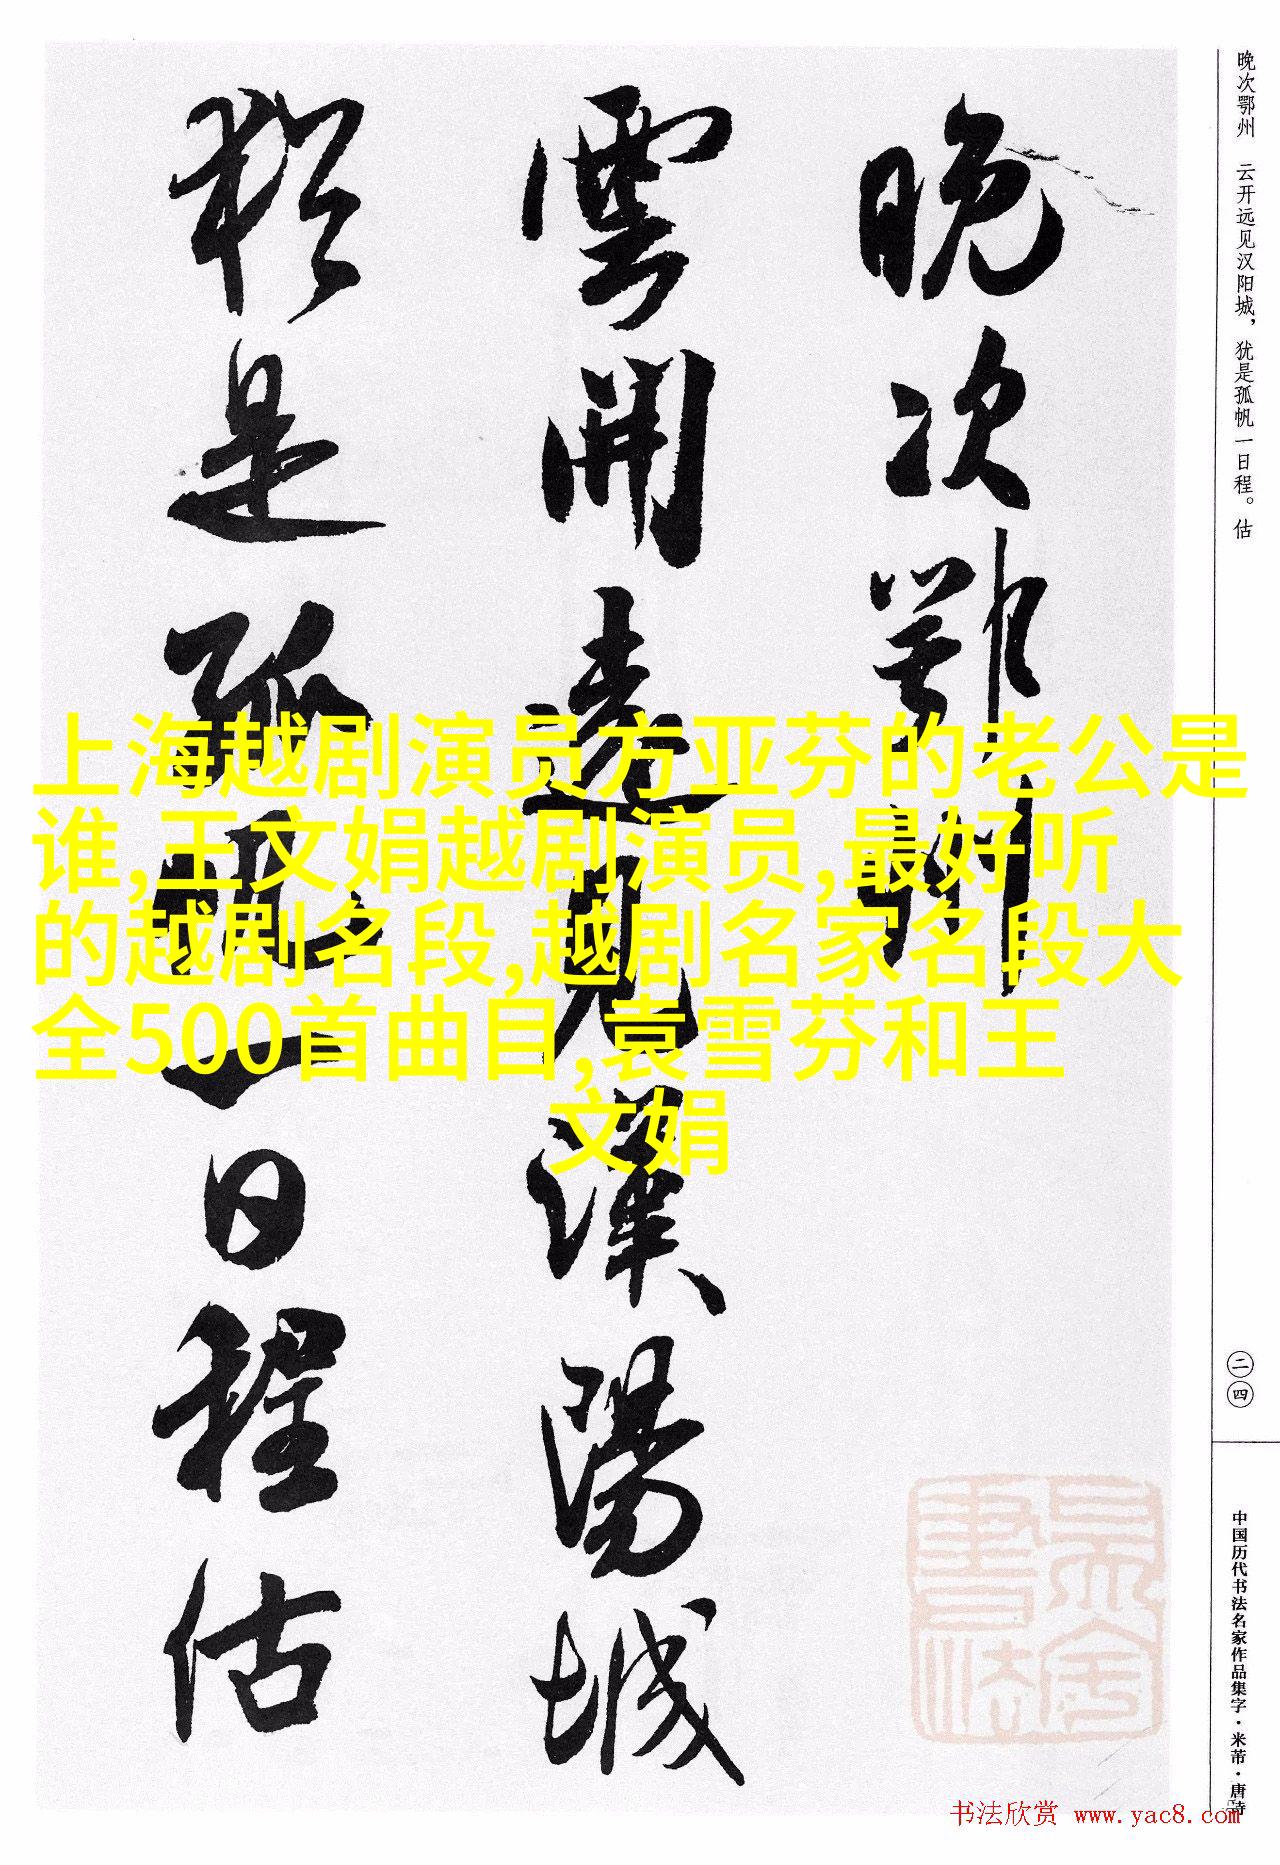 晚次鄂州　云开远见汉阳城，犹是孤帆一日程。估
晚次鄂州
雲開遠見漢陽城
猶是孤帆一日程估
上海越剧演员方亚芬的老公是
谁,王文娟越剧演员,最好听
的越剧名段,越剧名家名段大
全500首曲目,袁雪芬和王
文娟
二四
中国历代书法名家作品集字·米芾·唐诗
书法欣赏 www.yac8.com